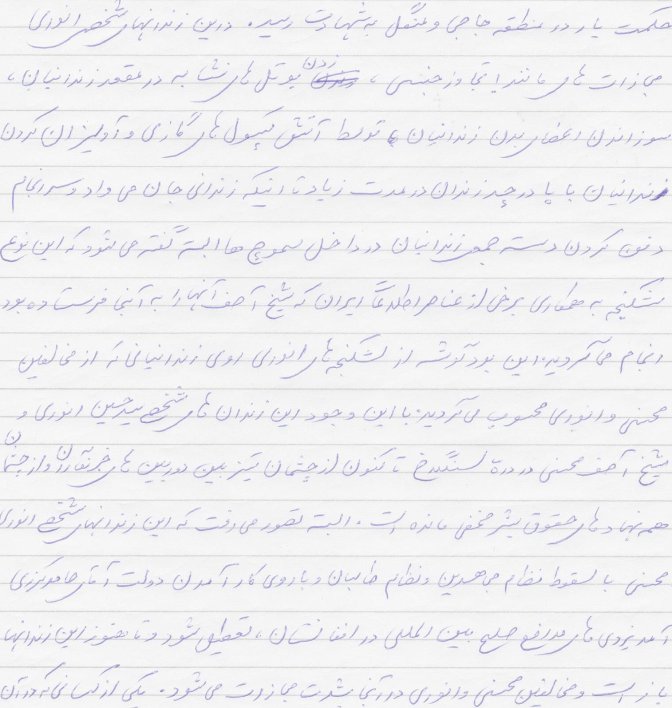 حکمت یار در منطقه حاجی و منگل به شهادت رسید. درین زندانهای شخصی انوری
مجازات های مانند تجاوز جنسی، زدن بوتل های نشابه در مقعد زندانیان،
سوزاندن اعضای بدن زندانیان توسط آتش کپسول های گازی و آویزان کردن
زندانیان با پا در چد زندان در مدت زیاد تا اینکه زندانی جان می داد و سرانجام
دفون کردن دسته جمعی زندانیان در داخل سموچ ها البته گفته می شود که این نوع
شکنجه به همکاری برخی از عناصر اطلاعاتی ایران که شیخ آصف آنها را به آنجا فرستاده بود
انجام می گردید. این بود گوشه از شکنجه های انوری روی زندانیانی که از مخالفین
محسنی و انوری محسوب می گردید. با این وجود این زندان های شخصی سید حسین انوری و
شیخ آصف محسنی در دره سنگلاخ تا کنون از چشمان تیز بین دوربین های خبرنگاران و از چشمان
همه نهاد های حقوق بشر مخفی مانده است. البته تصور می رفت که این زندانهای شخصی انوری
محسنی با سقوط نظام مجاهدین و نظام طالبان و با روی کار آمدن دولت آقای حامد کرزی
آمد نیروی های مدافع صلح بین المللی در افغانستان، تعطیل شود و تا هنوز این زندانها
باز است و مخالفین محسنی و انوری در آنجا بشدت مجازات می شود. یکی از کسانی که در آن